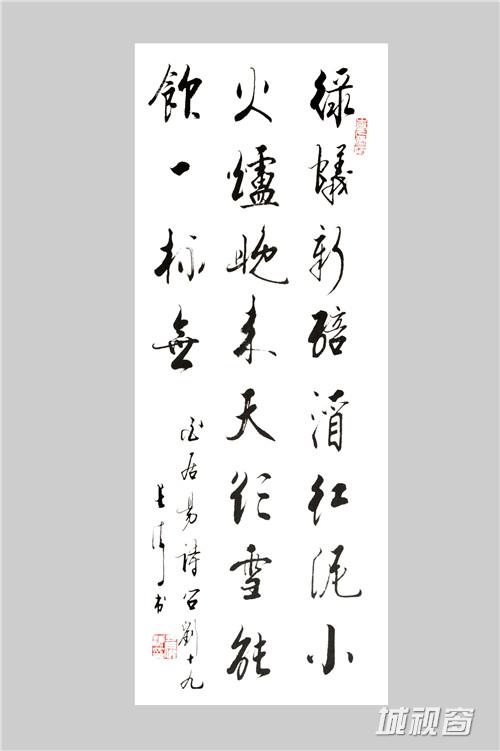 綠蟻新醅酒紅泥小
火爐晚来天欲雪能
飲一杯無
白居易詩问劉十九
书
城视窗